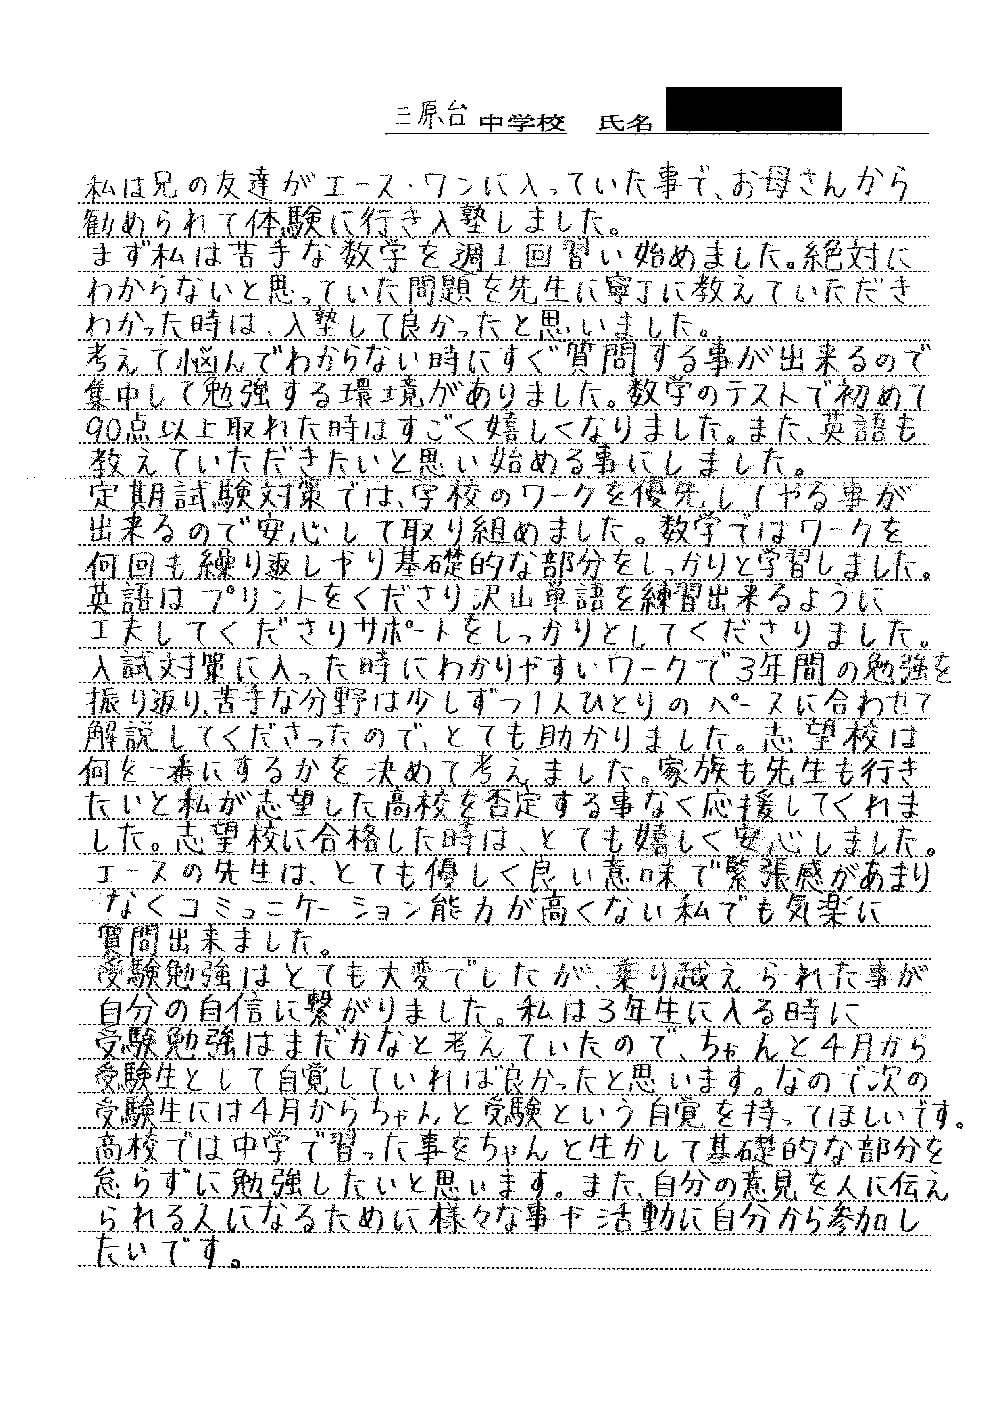 三原台 中学校 氏名
私は兄の友達がエース・ワンに入っていた事で、お母さんから
勧められて体験に行き入塾しました。
まず私は苦手な数学を週1回習い始めました。絶対に
わからないと思っていた問題を先生に寧丁に教えていただき
わかった時は、入塾して良かったと思いました。
考えて悩んでわからない時にすぐ質問する事が出来るので
集中して勉強する環境がありました。数学のテストで初めて
90点以上取れた時はすごく嬉しくなりました。また、英語も
教えていただきたいと思い始める事にしました。
定期試験対策では、学校のワークを優先してやる事が
出来るので安心して取り組めました。数学ではワークを
何回も繰り返しやり基礎的な部分をしっかりと学習しました。
英語はプリントをくださり沢山単語を練習出来るように
工夫してくださりサポートをしっかりとしてくださりました。
入試対策に入った時にわかりやすいワークで3年間の勉強を
振り返り、苦手な分野は少しずつ1人ひとりのペースに合わせて
解説してくださったので、とても助かりました。志望校は
何を一番にするかを決めて考えました。家族も先生も行き
たいと私が志望した高校を否定する事なく応援してくれま
した。志望校に合格した時は、とても嬉しく安心しました。
エースの先生は、とても優しく良い意味で緊張感があまり
なくコミュニケーション能力が高くない私でも気楽に
質問出来ました。
受験勉強はとても大変でしたが、乗り越えられた事が
自分の自信に繋がりました。私は3年生に入る時に
受験勉強はまだかなと考えていたので、ちゃんと4月から
受験生として自覚していれば良かったと思います。なので次の
受験生には4月からちゃんと受験という自覚を持ってほしいです。
高校では中学で習った事をちゃんと生かして基礎的な部分を
怠らずに勉強したいと思います。また、自分の意見を人に伝え
られる人になるために様々な事や活動に自分から参加し
たいです。